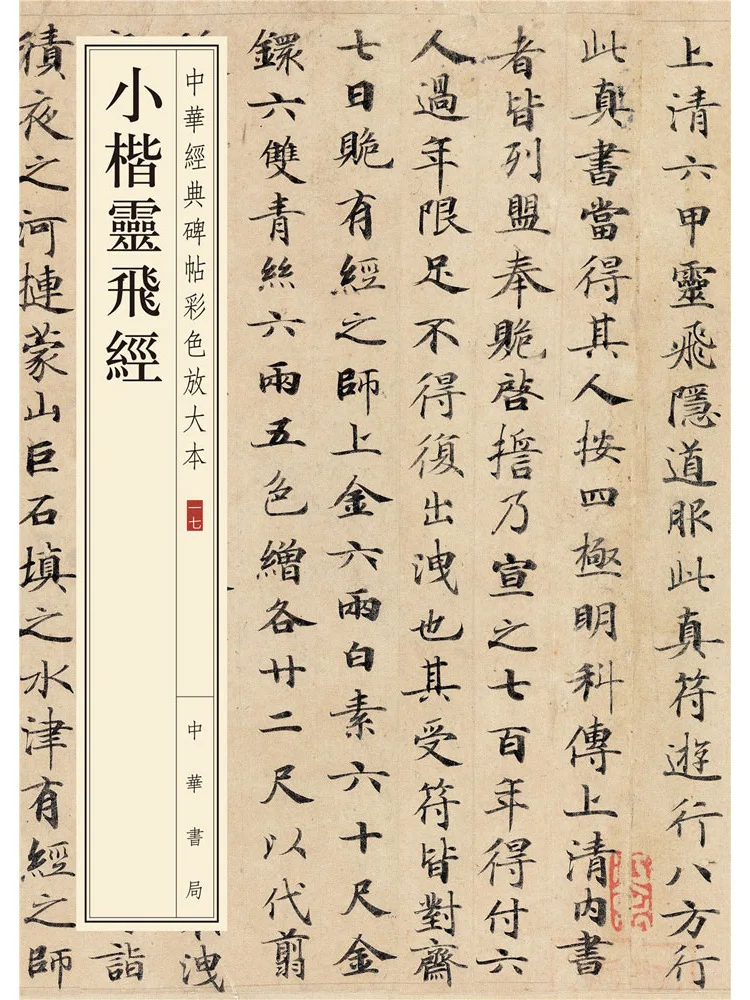 上清六甲靈飛隱道服此真符遊行八方行
此真書當得其人按四極明科傳上清內書
者皆列盟奉贎啓誓乃宣之七百年得付六
人過年限足不得復出洩也其受符皆對齋
七日贎有經之師上金六兩白素六十尺金
鐶六雙青絲六兩五色繒各廿二尺以代翦
洩
詣
積夜之河摙蒙山巨石填之水津有經之師
中華經典碑帖彩色放大本
一七
中華書局
小楷靈飛經